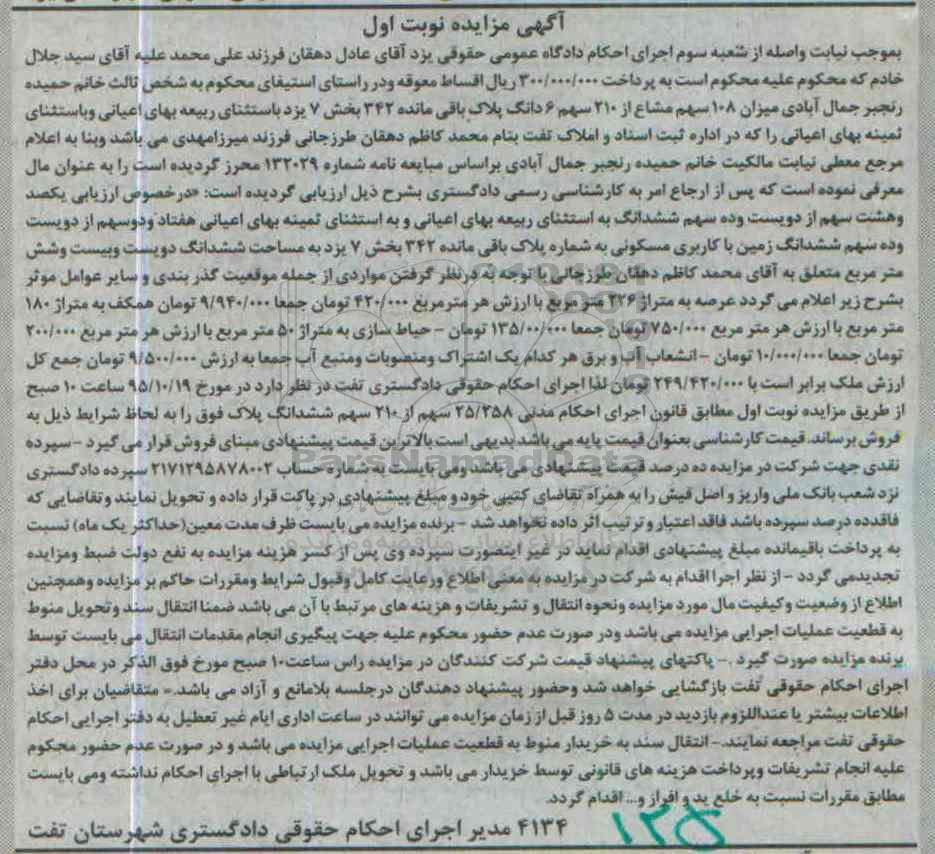 آگهی مزایده نوبت اول
بموجب نیابت واصله از شعبه سوم اجرای احکام دادگاه عمومی حقوقی یزد آقای عادل دهقان فرزند علی محمد علیه آقای سید جلال
خادم که محکوم علیه محکوم است به پرداخت ۳۰۰/۰۰۰/۰۰۰ ریال اقساط معوقه ودر راستای استیفای محکوم به شخص ثالث خانم حمیده
رنجبر جمال آبادی میزان ۱۰۸ سهم مشاع از ۲۱۰ سهم ۶ دانگ پلاک باقی مانده ۳۴۲ بخش ۷ یزد باستثنای ربیعه بهای اعیانی وباستثنای
ثمینه بهای اعیانی را که در اداره ثبت اسناد و املاک تفت بنام محمد کاظم دهقان طرزجانی فرزند میرزامهدی می باشد وبنا به اعلام
مرجع معطی نیابت مالکیت خانم حمیده رنجبر جمال آبادی براساس مبایعه نامه شماره ۱۳۲۰۲۹ محرز گردیده است را به عنوان مال
معرفی نموده است که پس از ارجاع امر به کارشناسی رسمی دادگستری بشرح ذیل ارزیابی گردیده است: «درخصوص ارزیابی یکصد
وهشت سهم از دویست وده سهم ششدانگ به استثنای ربیعه بهای اعیانی و به استثنای ثمینه بهای اعیانی هفتاد ودوسهم از دویست
وده سهم ششدانگ زمین با کاربری مسکونی به شماره پلاک باقی مانده ۳۴۲ بخش ۷ یزد به مساحت ششدانگ دویست وبیست وشش
متر مربع متعلق به آقای محمد کاظم دهقان طرزجانی با توجه به درنظر گرفتن مواردی از جمله موقعیت گذر بندی و سایر عوامل موثر
بشرح زیر اعلام می گردد عرصه به متراژ ۲۲۶ متر مربع با ارزش هر مترمربع ۴۲۰/۰۰۰ تومان جمعا ۹/۹۴۰/۰۰۰ تومان همکف به متراژ ۱۸۰
متر مربع با ارزش هر متر مربع ۷۵۰/۰۰۰ تومان جمعا ۱۳۵/۰۰/۰۰۰ تومان – حیاط سازی به متراژ ۵۰ متر مربع با ارزش هر متر مربع ۲۰۰/۰۰۰
تومان جمعا ۱۰/۰۰۰/۰۰۰ تومان – انشعاب آب و برق هر کدام یک اشتراک ومنصوبات ومنبع آب جمعا به ارزش ۹/۵۰۰/۰۰۰ تومان جمع کل
ارزش ملک برابر است با ۲۴۹/۴۲۰/۰۰۰ تومان لذا اجرای احکام حقوقی دادگستری تفت در نظر دارد در مورخ ۹۵/۱۰/۱۹ ساعت ۱۰ صبح
از طریق مزایده نوبت اول مطابق قانون اجرای احکام مدنی ۲۵/۲۵۸ سهم از ۲۱۰ سهم ششدانگ پلاک فوق را به لحاظ شرایط ذیل به
فروش برساند. قیمت کارشناسی بعنوان قیمت پایه می باشد بدیهی است بالاترین قیمت پیشنهادی مبنای فروش قرار می گیرد – سپرده
نقدی جهت شرکت در مزایده ده درصد قیمت پیشنهادی می باشد ومی بایست به شماره حساب ۲۱۷۱۲۹۵۸۷۸۰۰۲ سپرده دادگستری
نزد شعب بانک ملی واریز و اصل فیش را به همراه تقاضای کتبی خود و مبلغ پیشنهادی در پاکت قرار داده و تحویل نمایند وتقاضایی که
فاقدده درصد سپرده باشد فاقد اعتبار و ترتیب اثر داده نخواهد شد – برنده مزایده می بایست ظرف مدت معین(حداکثر یک ماه) نسبت
به پرداخت باقیمانده مبلغ پیشنهادی اقدام نماید در غیر اینصورت سپرده وی پس از کسر هزینه مزایده به نفع دولت ضبط ومزایده
تجدیدمی گردد – از نظر اجرا اقدام به شرکت در مزایده به معنی اطلاع ورعایت کامل وقبول شرایط ومقررات حاکم بر مزایده وهمچنین
اطلاع از وضعیت وکیفیت مال مورد مزایده ونحوه انتقال و تشریفات و هزینه های مرتبط با آن می باشد ضمنا انتقال سند وتحویل منوط
به قطعیت عملیات اجرایی مزایده می باشد ودر صورت عدم حضور محکوم علیه جهت پیگیری انجام مقدمات انتقال می بایست توسط
برنده مزایده صورت گیرد .– پاکتهای پیشنهاد قیمت شرکت کنندگان در مزایده راس ساعت۱۰ صبح مورخ فوق الذکر در محل دفتر
اجرای احکام حقوقی تفت بازگشایی خواهد شد وحضور پیشنهاد دهندگان درجلسه بلامانع و آزاد می باشد.– متقاضیان برای اخذ
اطلاعات بیشتر یا عنداللزوم بازدید در مدت ۵ روز قبل از زمان مزایده می توانند در ساعت اداری ایام غیر تعطیل به دفتر اجرایی احکام
حقوقی تفت مراجعه نمایند.– انتقال سند به خریدار منوط به قطعیت عملیات اجرایی مزایده می باشد و در صورت عدم حضور محکوم
علیه انجام تشریفات وپرداخت هزینه های قانونی توسط خریدار می باشد و تحویل ملک ارتباطی با اجرای احکام نداشته ومی بایست
مطابق مقررات نسبت به خلع ید و افراز و... اقدام گردد.
۴۱۳۴ مدیر اجرای احکام حقوقی دادگستری شهرستان تفت
۱۲۵
ParsNamadData